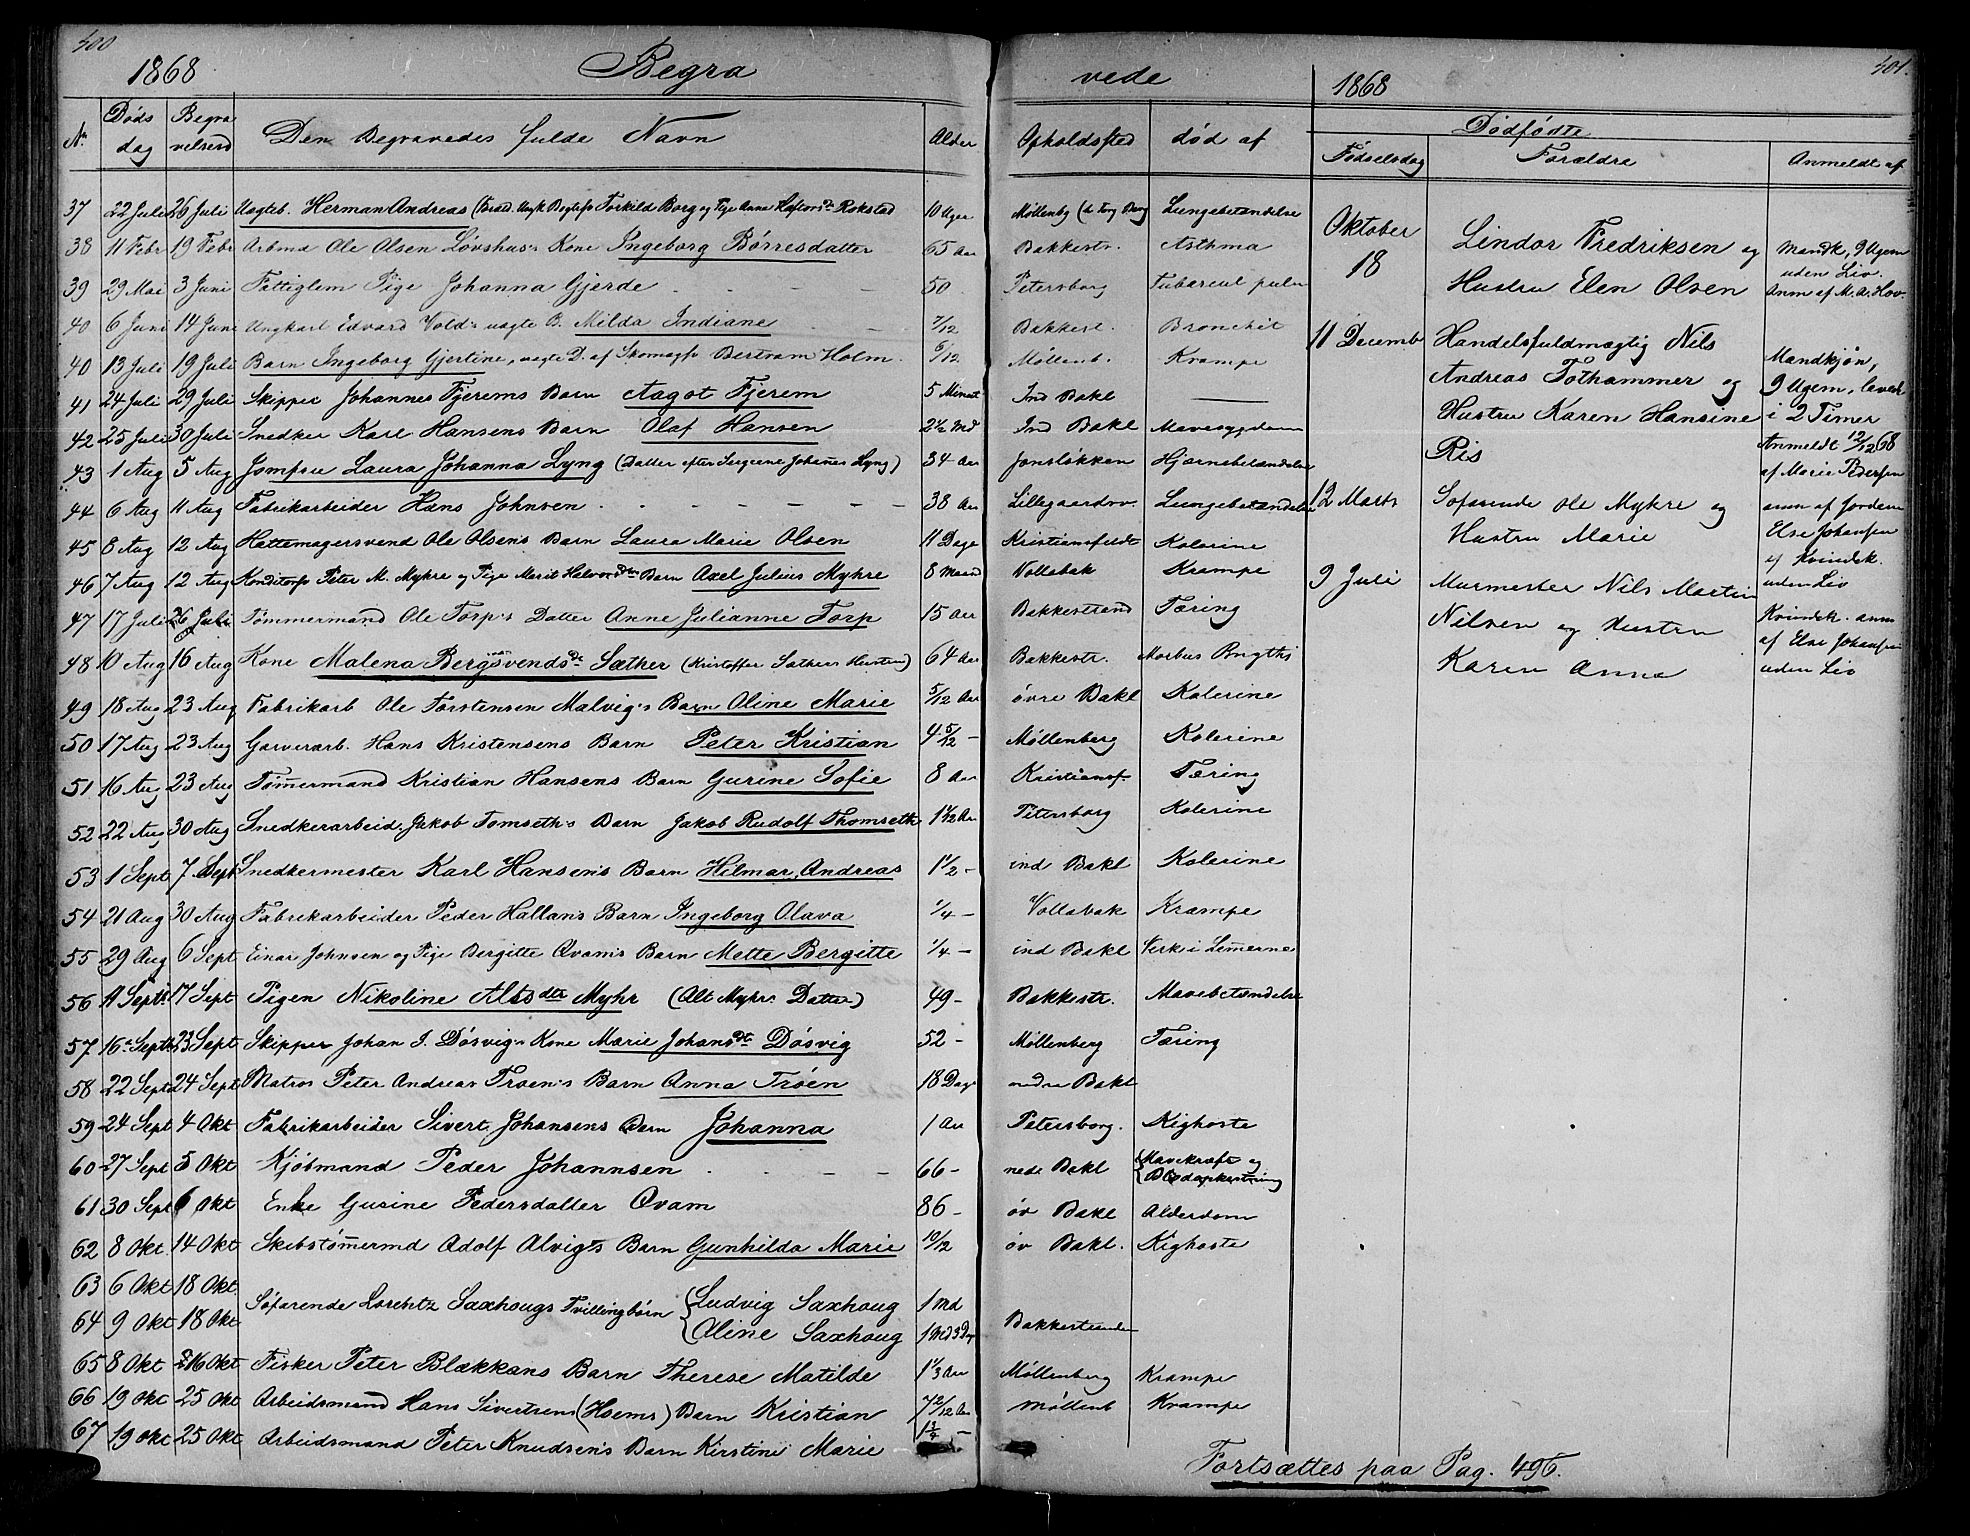 400
1868 Begra
No Døds dag Begravelsesd Den Begravedes fulde Navn Alder
37 22 Juli 26 Juli Uægteb. Herman Andreas (Forkild Borg og Pige Anne Rokstad 10 Uger
38 11 Febr 19 Febr Arbmd Ole Olsen Løvshus's Kone Ingeborg Børresdatter 65 Aar
39 29 Mai 3 Juni Fattiglem Pige Johanna Gjerde 50
40 6 Juni 14 Juni Ungkarl Edvard Vold's uægte B. Milda Indiane 7/12
40 13 Juli 19 Juli Barn Ingeborg Gjertine, uægte D. af Skomagsv Bertram Holm 6/12
41 24 Juli 29 Juli Skipper Johannes Fjerems Barn Aagot Fjerem 5 Minut
42 25 Juli 30 Juli Snedker Karl Hansens Barn Olaf Hansen 2½ Md
43 1 Aug 5 Aug Jomfru Laura Johanna Lyng (Datter efter Sergeene Johannes Lyng) 34 Aar
44 6 Aug 11 Aug Fabrikarbeider Hans Johnsen 38 Aar
45 8 Aug 12 Aug Hattemagersvend Ole Olsen's Barn Laura Marie Olsen 11 Dage
46 7 Aug 12 Aug Konditorsv Peter M. Myhre og Pige Marit Halvorsdtr Barn Axel Julius Myhre 8 Maand
47 17 Juli 26 Juli Tømmermand Ole Torp's Datter Anne Julianne Torp 15 Aar
48 10 Aug 16 Aug Kone Malena Bergsvendsdt Sæther (Kristoffer Sæthers Hustru) 64 Aar
49 18 Aug 23 Aug Fabrikarb Ole Torstensen Malvig's Barn Oline Marie 5/12 Aar
50 17 Aug 23 Aug Garverarb. Hans Kristensens Barn Peter Kristian 4 5/12 -
51 16 Aug 23 Aug Tømermand Kristian Hansens Barn Gurine Sofie 8 Aar
52 22 Aug 30 Aug Snedkerarbeid. Jakob Tomseth's Barn Jakob Rudolf Thomseth 1½ Aar
53 1 Sept 7 Sept Snedkermester Karl Hansen's Barn Hilmar Andreas 1½ -
54 21 Aug 30 Aug Fabrikarbeider Peder Hallan's Barn Ingeborg Olava ¼ -
55 29 Aug 6 Sept Einar Johnsen og Pige Bergitte Qvam's Barn Mette Bergitte ¼ -
56 11 Sept. 17 Sept Pigen Nikoline Altsdtr Myhr (Alt Myhrs Datter) 49 -
57 16 Septb 23 Sept Skipper Johan J. Døsvig's Kone Marie Johansdt Døsvig 52 -
58 22 Sept 24 Sept Matros Peter Andreas Trøen's Barn Anna Trøen 18 Dage
59 24 Sept 4 Okt Fabrikarbeider Sivert Johansens Barn Johanna 1 Aar
60 27 Sept 5 Okt Kjøbmand Peder Johannsen 66 -
61 30 Sept 6 Okt Enke Gurine Pedersdatter Qvam 86 -
62 8 Okt. 14 Okt Skibstømermd Adolf Alvig's Barn Gunhilda Marie 10/12
63 6 Okt 18 Okt Søfarende Lorentz Saxhougs Tvillingbørn Ludvig Saxhoug 1 Md
64 9 Okt 18 Okt Oline Saxhoug 1 Md 3 Dag
65 8 Okt 16 Okt Fisker Peter Blækkans Barn Therese Matilde 1⅓ Aar
66 19 Okt 25 Okt Arbeidsmand Hans Sivertsens (Hoems) Barn Kristian 7 2/12 Aar
67 19 Okt 25 Okt Arbeidsmand Peter Knudsen's Barn Kirstine Marie 1¾ -
401.
vede 1868
Opholdssted død af
Møllenbg Lungebetændelse
Bakkestr. Asthma
Petersborg Tubercul pulm
Bakkest. Bronchit
Møllenb. Krampe
Ind Bakl
Ind Bakl Mavesygdom
Jonsløkken Hjernebetændelse
Lillegaardsv. Lungebetændelse
Kristiansfeldt Kolerine
Vollabak Krampe
Bakkestrand Tæring
Bakkestr. Morbus Brigthi
øvre Bakl Kolerine
Møllenberg Kolerine
Kristiansf. Tæring
Petersborg Kolerine
ind Bakl Kolerine
Vollabak Krampe
ind Bakl Værk i Lemerne
Bakkestr. Mavebetændelse
Møllenberg Tæring
nedre Bakl
Petersborg. Kighoste
nede Bakl Mavekræft og Blodopkastning
øv Bakl Alderdom
øv Bakl. Kighoste
Bakkestranden
Møllenberg Krampe
Møllenb Krampe
Dødfødte
Fødselsdag Forældre Anmeldt af
Oktober 18 Lindor Fredriksen og Hustru Elen Olsen Mandk, 9 Ugem uden Liv. Anm af M. A. Hov.
11 Decemb Handelsfuldmægtig Nils Andreas Tothammer og Hustru Karen Hansine Ris Mandkjøn, 9 Ugem, levede i 2 Timer Anmeldt 12/12 68 af Marie Pedersen
12 Marts Søfarende Ole Myhre og Hustru Marie anm af Jordem Else Johansen ef Kvindek. uden Liv
9 Juli Murmester Nils Martin Nilsen og Hustru Karen Anna Kvindek. anm af Else Johansen uden Liv
Fortsættes paa Pag. 496.